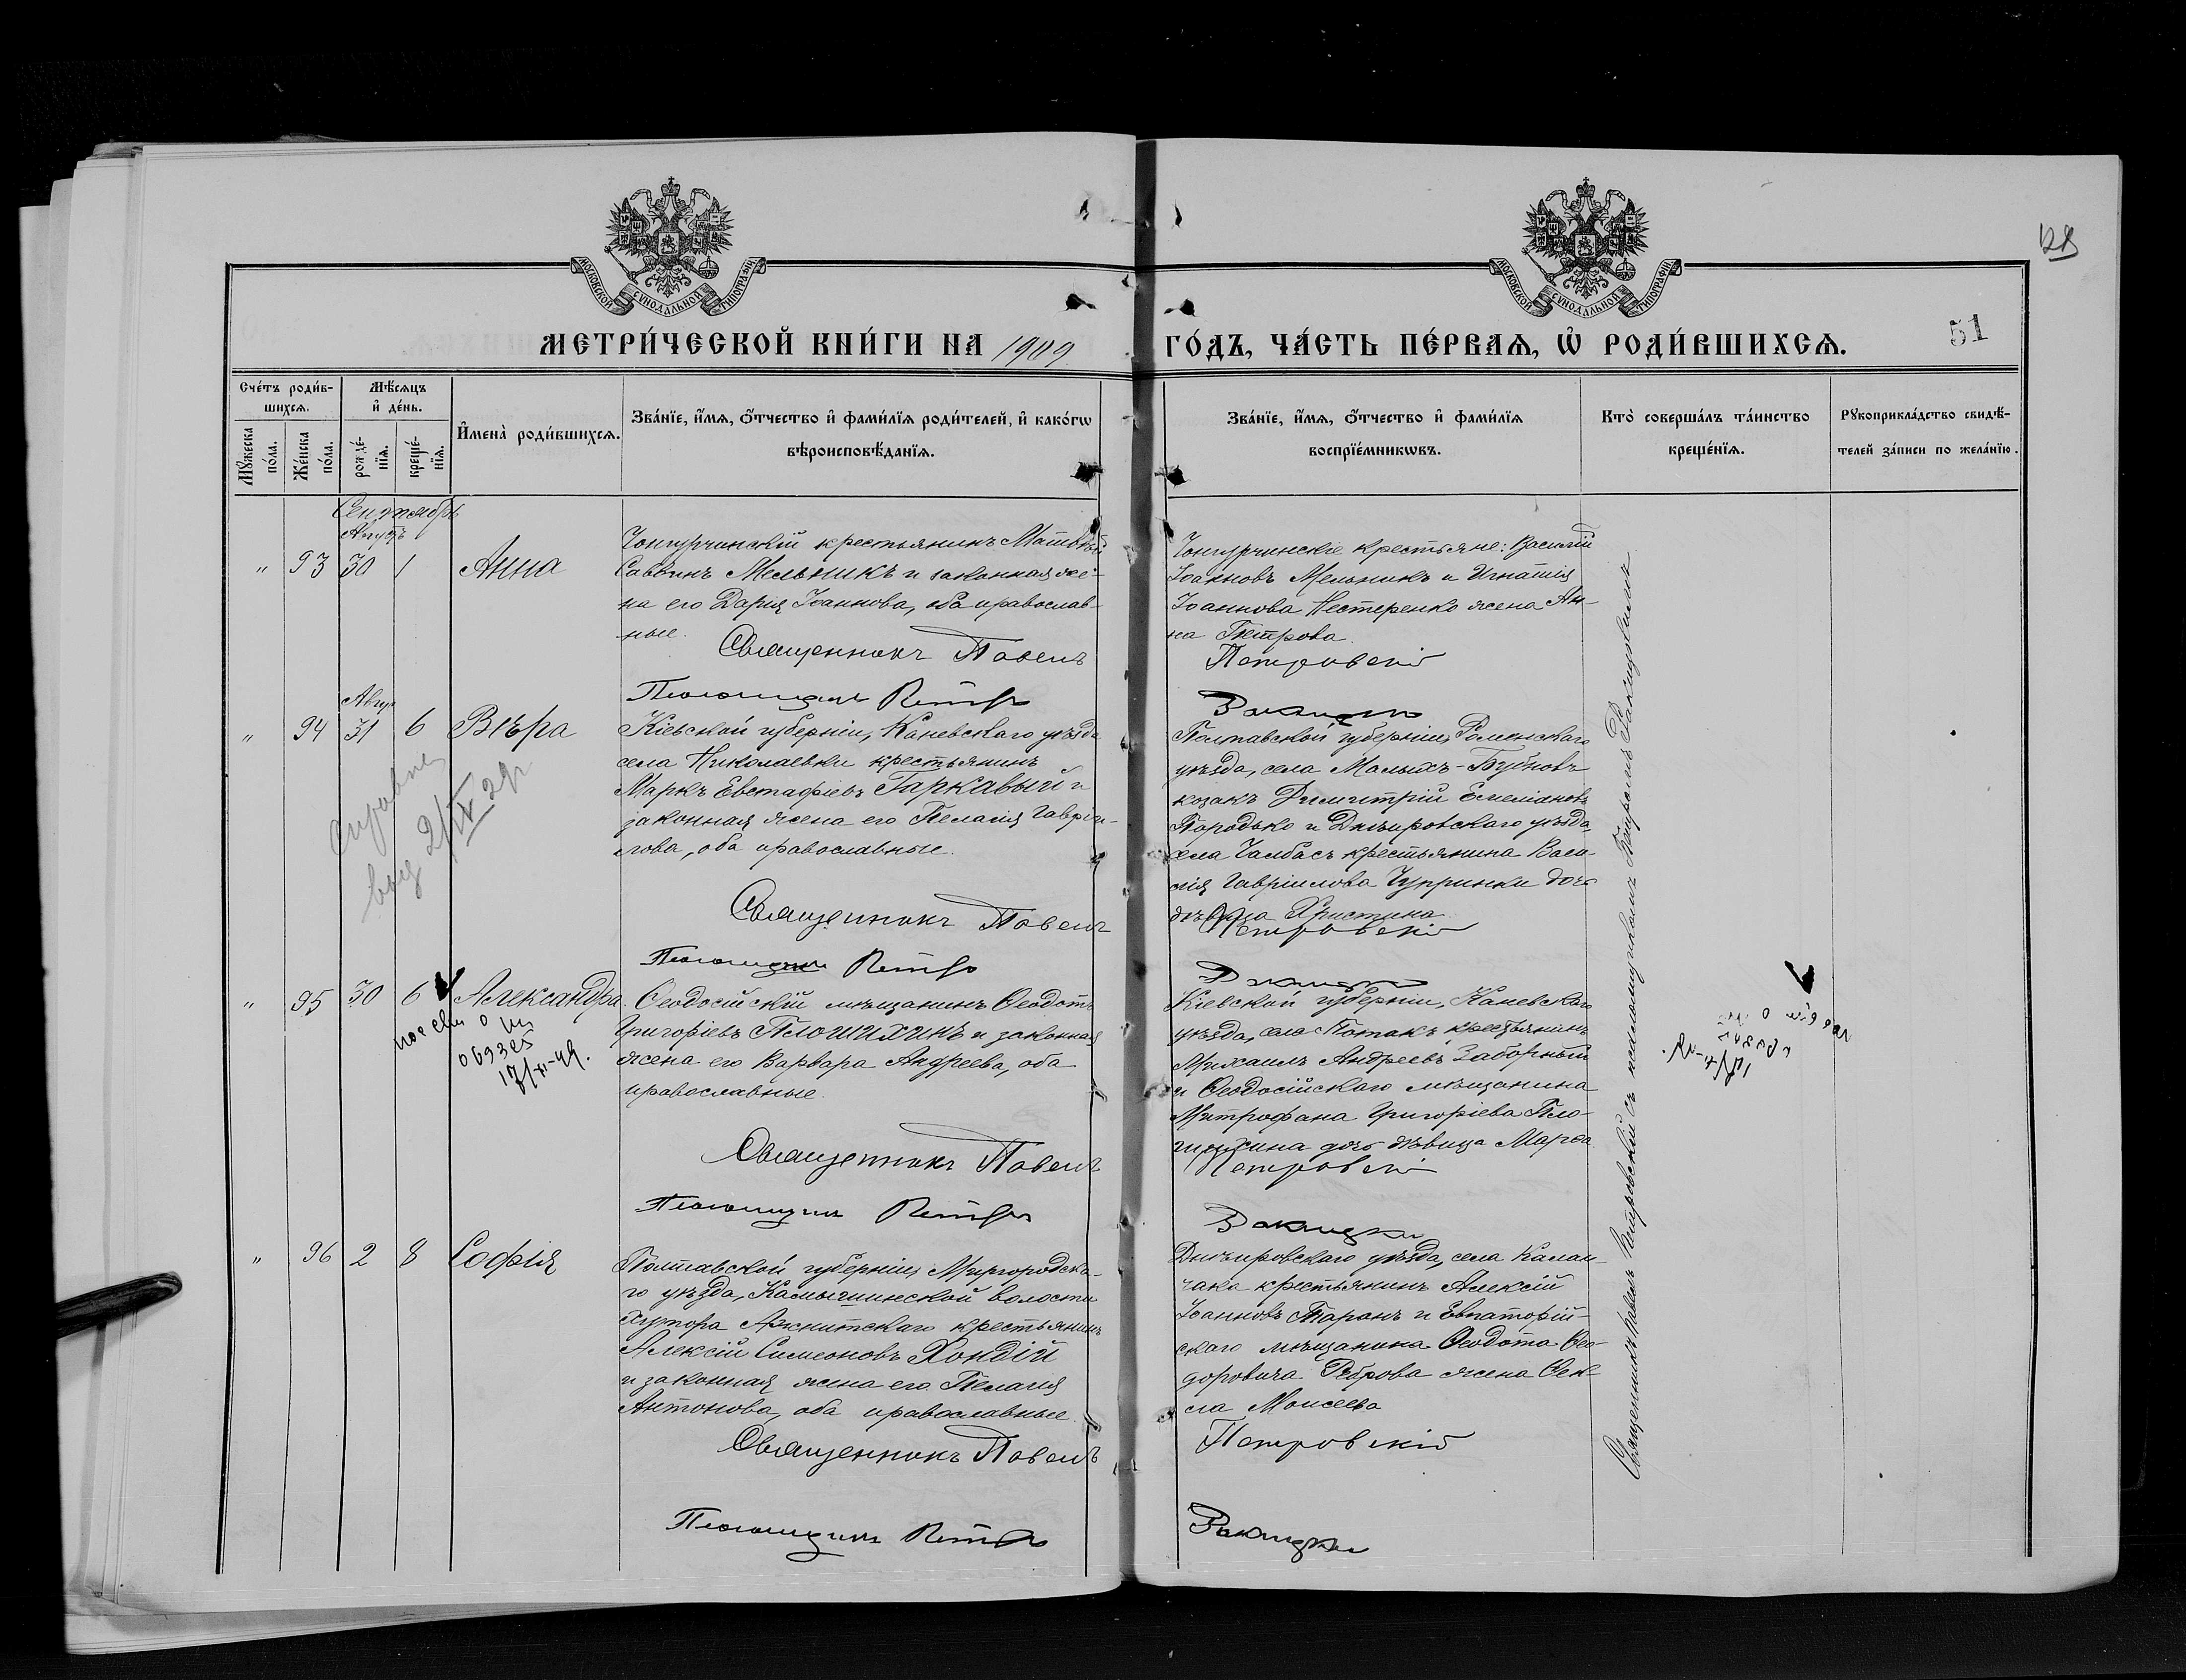 128
МОСКОВСКОЙ СѴНОДАЛЬНОЙ ТИПОГРАФІИ
МОСКОВСКОЙ СѴНОДАЛЬНОЙ ТИПОГРАФІИ
МЕТРИ́ЧЕСКОЙ КНИ́ГИ НА 1909
ГО́ДЪ, ЧА́СТЬ ПЕ́РВАѦ, Ѡ҆ РОДИ́ВШИХСѦ.
51
Сче́тъ роди́в-
шихсѧ.
Мꙋ́жеска по́ла.
Же́нска по́ла.
Мѣ́сѧцъ
и҆ де́нь.
рожде́-
нїѧ.
креще́-
нїѧ.
И҆мена̀ роди́вшихсѧ.
Зва́нїе, и҆́мѧ, ѻ҆́тчество и҆ фами́лїѧ роди́телей, и҆ како́гѡ
вѣроисповѣ́данїѧ.
Зва́нїе, и҆́мѧ, ѻ҆́тчество и҆ фами́лїѧ
воспрїе́мникѡвъ.
Кто̀ соверша́лъ та́инство
креще́нїѧ.
Рꙋкоприкла́дство свидѣ́-
телей за́писи по жела́нїю.
Сентябрь
Августъ
" 93 30 1 Анна
Чонгурчинскій крестьянинъ Матвѣй
Саввинъ Мельникъ и законная же-
на его Дарія Іоаннова, оба православ-
ные.
Священникъ Павелъ
Псаломщикъ Петръ
Чонгурчинскіе крестьяне: Василій
Іоанновъ Мельникъ и Игнатія
Іоаннова Нестеренко жена Ан-
на Петрова.
Петровскій
Ракицкій
Авгус
" 94 31 6 Вѣра
Кіевской губерніи, Каневскаго уѣзда
села Николаевки крестьянинъ
Маркъ Евстафіевъ Гаркавый и
законная жена его Пелагія Гаврии-
лова, оба православные.
Священникъ Павелъ
Псаломщикъ Петръ
Полтавской губерніи, Роменскаго
уѣзда, села Малыхъ-Бубновъ
козакъ Димитрій Емеліановъ
Породько и Днѣпровскаго уѣзда,
села Чалбасъ крестьянина Васи-
лія Гавріилова Чупринки дочь
дѣвица Христина.
Петровскій
Ракицкій
" 95 30 6 Александра.
Ѳеодосійскій мѣщанинъ Ѳеодотъ
Григоріевъ Плошихинъ и законная
жена его Варвара Андреева, оба
православные.
Священникъ Павелъ
Псаломщикъ Петръ
Кіевской губерніи, Каневскаго
уѣзда, села Потокъ крестьянинъ
Михаилъ Андреевъ Заборный
и Ѳеодосійскаго мѣщанина
Митрофана Григоріева Пло-
шихина дочь дѣвица Марѳа
Петровскій
Ракицкій
" 96 2 8 Софія
Полтавской губерніи, Миргородска-
го уѣзда, Камышинской волости
Хутора крестьянинъ
Алексій Симеоновъ Хондій
и законная жена его Пелагія
Антонова, оба православные.
Священникъ Павелъ
Псаломщикъ Петръ
Днѣпровскаго уѣзда, села Калан-
чака крестьянинъ Алексій
Іоанновъ Таранъ и Евпаторій-
скаго мѣщанина Ѳеодота Ѳео-
доровича Реброва жена Ѳек-
ла Моисеева
Петровскій
Ракицкій
Священникъ Павелъ Петровскій съ псаломщикомъ Петромъ Ракицкимъ